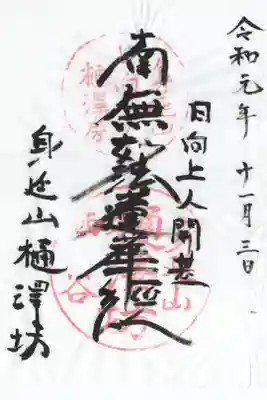 令和元年 十一月三日
日向上人開基
南無妙法蓮華経
身延山樋澤坊